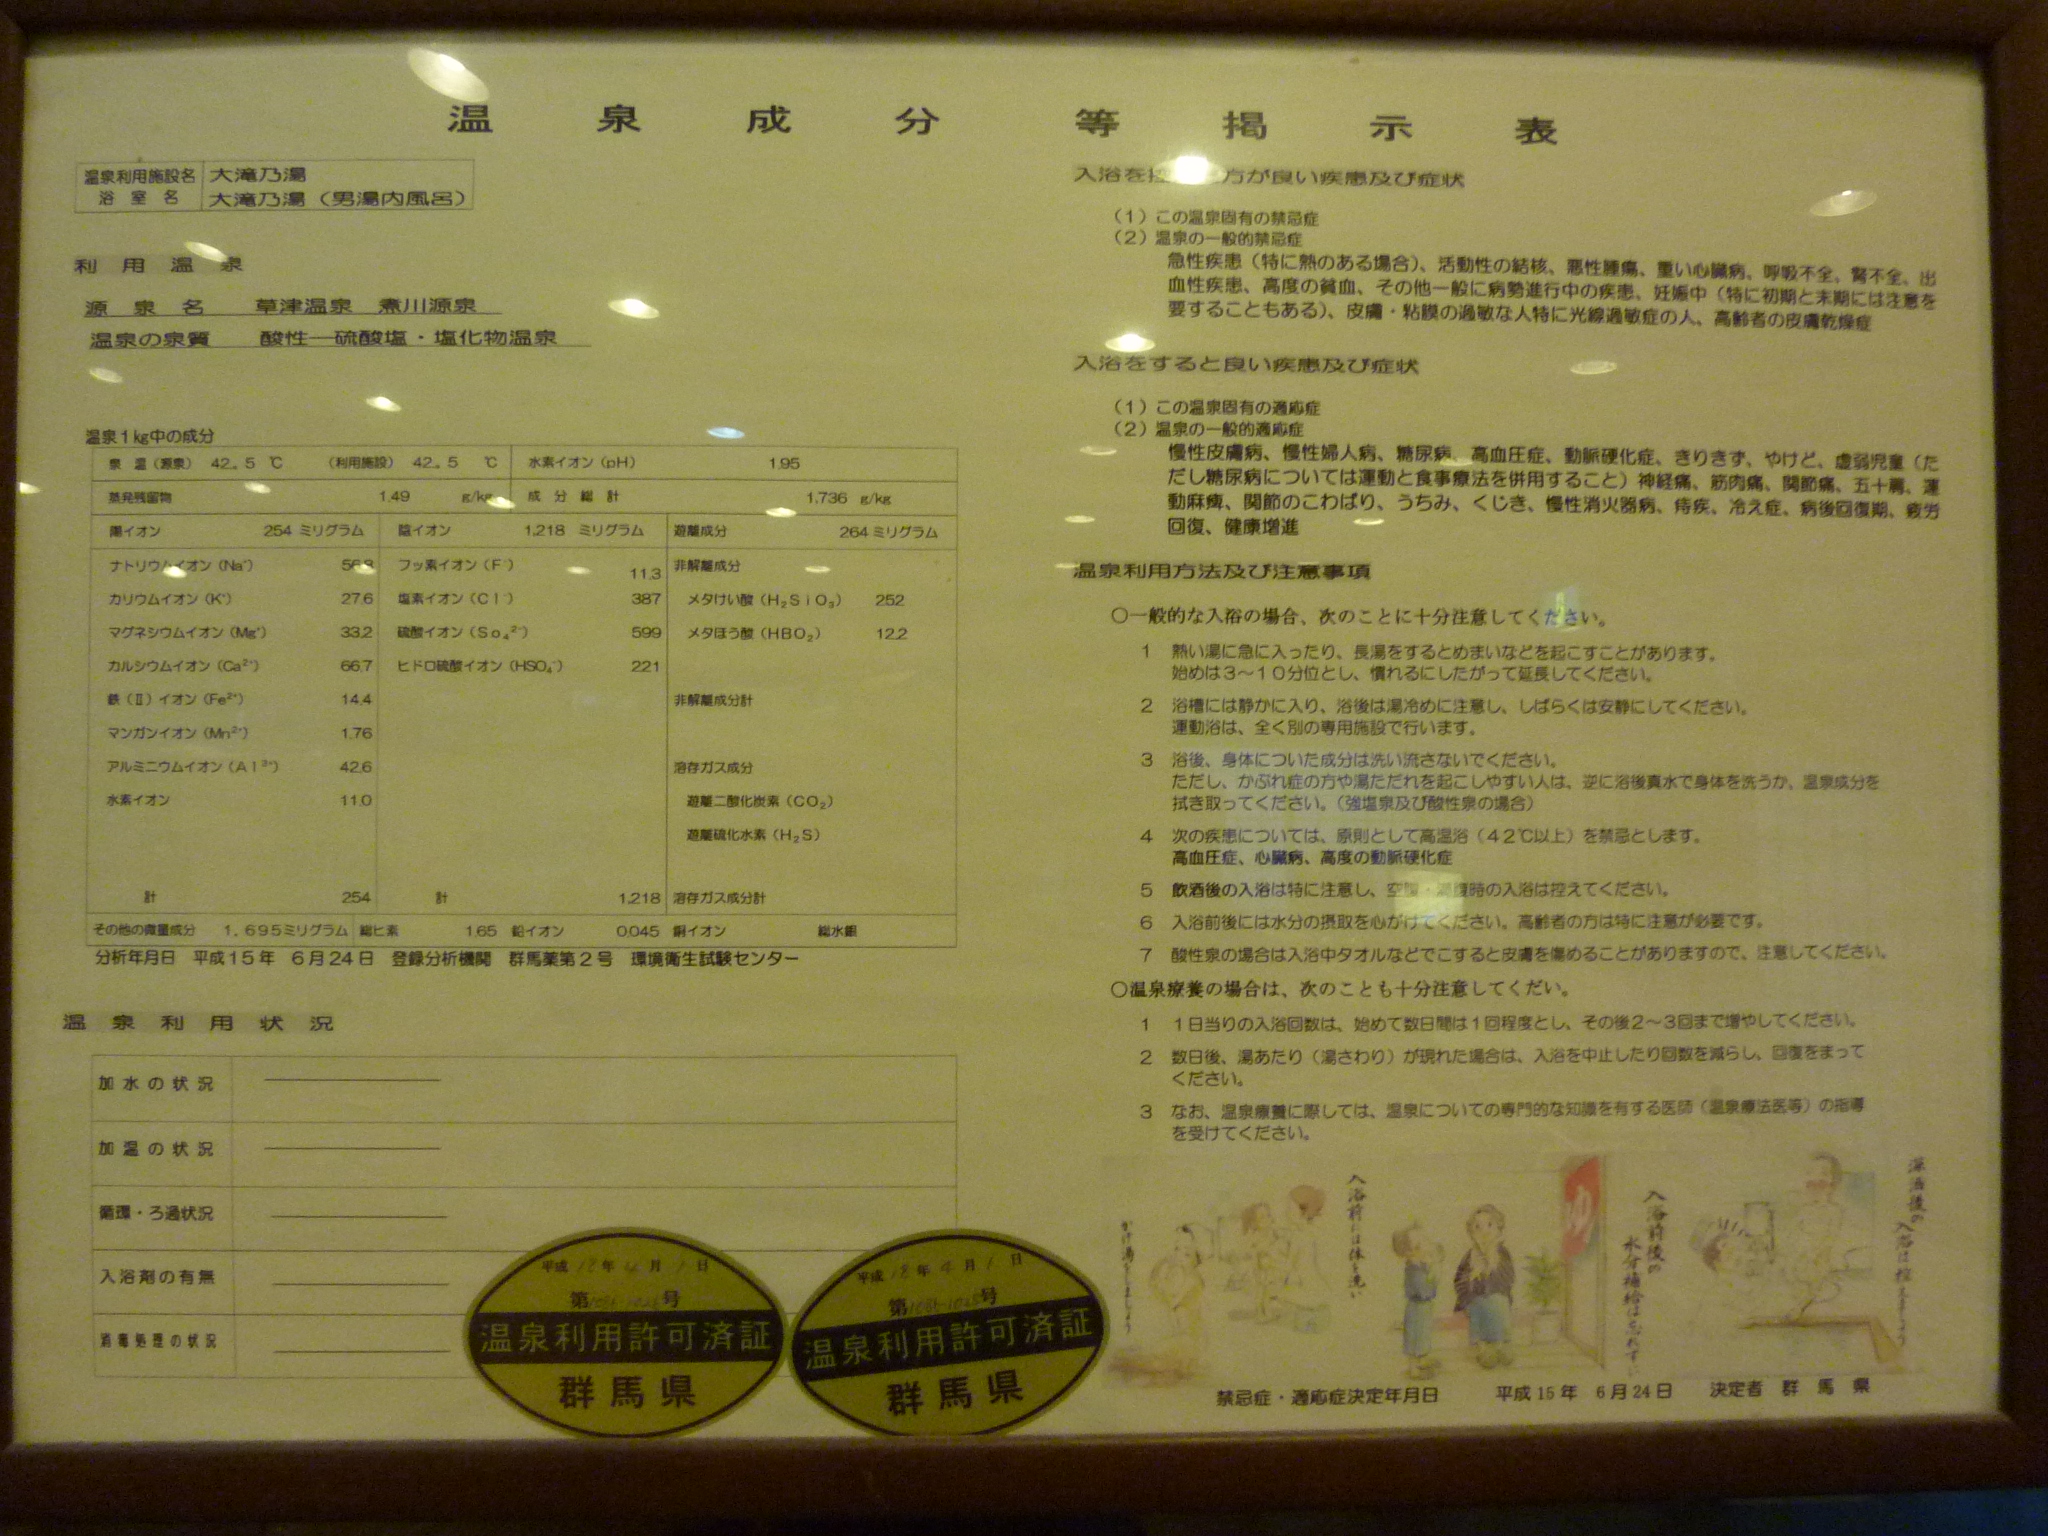 温泉成分等掲示表
温泉利用施設名 大滝乃湯
浴室名 大滝乃湯（男湯内風呂）
利用温泉
源泉名 草津温泉 煮川源泉
温泉の泉質 酸性―硫酸塩・塩化物温泉
温泉1kg中の成分
泉温（源泉） 42.5 ℃ （利用施設） 42.5 ℃ 水素イオン(pH) 1.95
蒸発残留物 1.49 g/kg 成分総計 1.736 g/kg
陽イオン 254 ミリグラム 陰イオン 1,218 ミリグラム 遊離成分 264 ミリグラム
ナトリウムイオン(Na⁺) 56.8 フッ素イオン(F⁻) 11.3 非解離成分
カリウムイオン(K⁺) 27.6 塩素イオン(Cl⁻) 387 メタけい酸(H₂SiO₃) 252
マグネシウムイオン(Mg⁺) 33.2 硫酸イオン(So₄²⁻) 599 メタほう酸(HBO₂) 12.2
カルシウムイオン(Ca²⁺) 66.7 ヒドロ硫酸イオン(HSO₄⁻) 221
鉄(Ⅱ)イオン(Fe²⁺) 14.4 非解離成分計
マンガンイオン(Mn²⁺) 1.76
アルミニウムイオン(Al³⁺) 42.6 溶存ガス成分
水素イオン 11.0 遊離二酸化炭素(CO₂)
遊離硫化水素(H₂S)
計 254 計 1,218 溶存ガス成分計
その他の微量成分 1.695ミリグラム 総ヒ素 1.65 鉛イオン 0.045 銅イオン 総水銀
分析年月日 平成15年 6月24日 登録分析機関 群馬薬第2号 環境衛生試験センター
温泉利用状況
加水の状況
加温の状況
循環・ろ過状況
入浴剤の有無
消毒処理の状況
平成18年4月1日
号
温泉利用許可済証
群馬県
平成18年4月1日
号
温泉利用許可済証
群馬県
入浴を 方が良い疾患及び症状
（1）この温泉固有の禁忌症
（2）温泉の一般的禁忌症
急性疾患（特に熱のある場合）、活動性の結核、悪性腫瘍、重い心臓病、呼吸不全、腎不全、出
血性疾患、高度の貧血、その他一般に病勢進行中の疾患、妊娠中（特に初期と末期には注意を
要することもある）、皮膚・粘膜の過敏な人特に光線過敏症の人、高齢者の皮膚乾燥症
入浴をすると良い疾患及び症状
（1）この温泉固有の適応症
（2）温泉の一般的適応症
慢性皮膚病、慢性婦人病、糖尿病、高血圧症、動脈硬化症、きりきず、やけど、虚弱児童（た
だし糖尿病については運動と食事療法を併用すること）神経痛、筋肉痛、関節痛、五十肩、運
動麻痺、関節のこわばり、うちみ、くじき、慢性消火器病、痔疾、冷え症、病後回復期、疲労
回復、健康増進
温泉利用方法及び注意事項
○一般的な入浴の場合、次のことに十分注意してください。
1 熱い湯に急に入ったり、長湯をするとめまいなどを起こすことがあります。
始めは3～10分位とし、慣れるにしたがって延長してください。
2 浴槽には静かに入り、浴後は湯冷めに注意し、しばらくは安静にしてください。
運動浴は、全く別の専用施設で行います。
3 浴後、身体についた成分は洗い流さないでください。
ただし、かぶれ症の方や湯ただれを起こしやすい人は、逆に浴後真水で身体を洗うか、温泉成分を
拭き取ってください。（強塩泉及び酸性泉の場合）
4 次の疾患については、原則として高温浴（42℃以上）を禁忌とします。
高血圧症、心臓病、高度の動脈硬化症
5 飲酒後の入浴は特に注意し、空腹・満腹時の入浴は控えてください。
6 入浴前後には水分の摂取を心がけてください。高齢者の方は特に注意が必要です。
7 酸性泉の場合は入浴中タオルなどでこすると皮膚を傷めることがありますので、注意してください。
○温泉療養の場合は、次のことも十分注意してくだい。
1 1日当りの入浴回数は、始めて数日間は1回程度とし、その後2～3回まで増やしてください。
2 数日後、湯あたり（湯さわり）が現れた場合は、入浴を中止したり回数を減らし、回復をまって
ください。
3 なお、温泉療養に際しては、温泉についての専門的な知識を有する医師（温泉療法医等）の指導
を受けてください。
かけ湯をしましょう
入浴前には体を洗い
ゆ
入浴前後の
水分補給は忘れずに
深酒後の
入浴は控えましょう
禁忌症・適応症決定年月日 平成15年 6月24日 決定者 群馬県